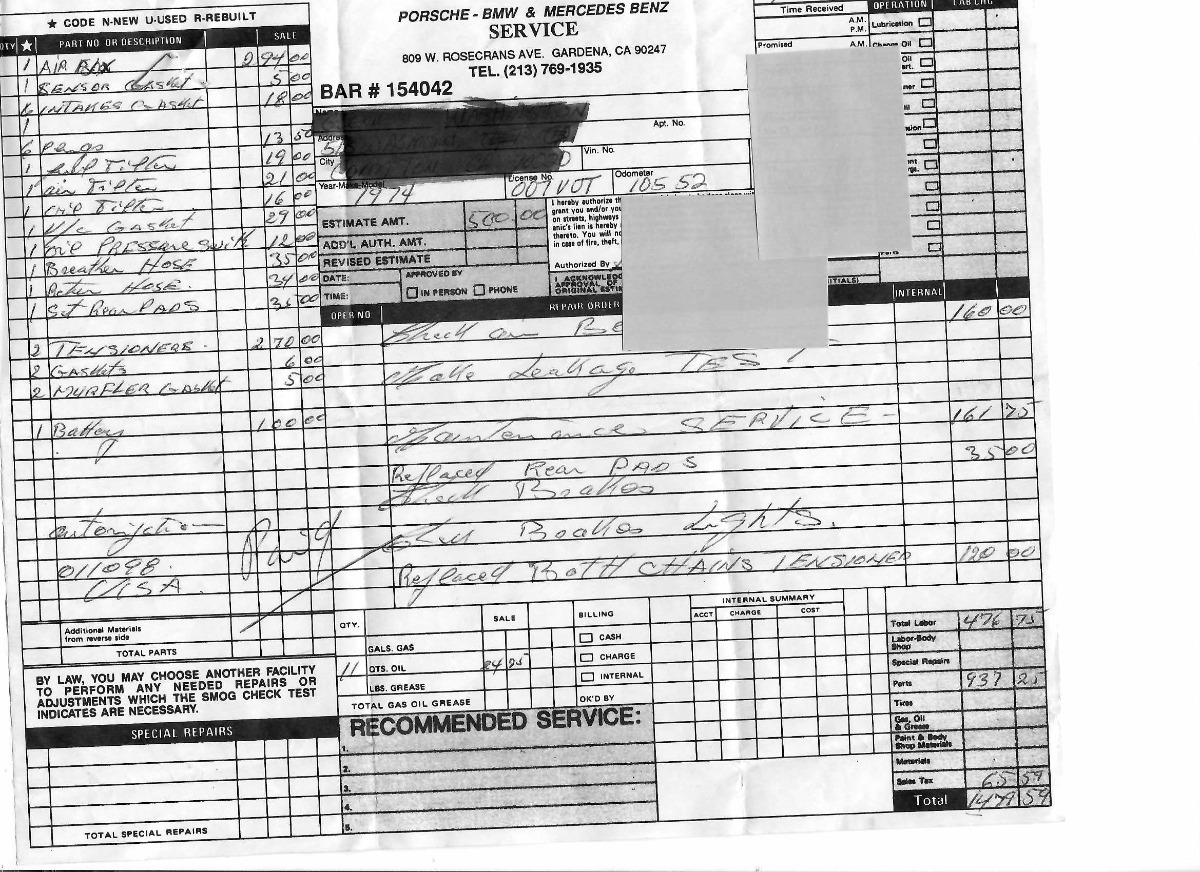 ★ CODE N-NEW U-USED R-REBUILT
QTY ★ PART NO OR DESCRIPTION SALE
1 AIR BOX 294 00
1 SENSOR GASKET 5 00
6 INTAKES GASKET 18 00
1
6 Plugs 13 50
1 fuel Filter 19 00
1 air Filter 21 00
1 oil Filter 16 00
1 V/C GASKET 29 00
1 OIL PRESSARE Swith 12 00
1 Breather HOSE 35 00
1 HOSE. 34 00
1 Set Rear PADS 35 00
2 TENSIONERS. 270 00
2 GASKETS 6 00
2 MUFFLER GASKET 5 00
1 Battery 100 00
autorization
011098.
VISA.
Paid
Additional Materials
from reverse side
TOTAL PARTS
BY LAW, YOU MAY CHOOSE ANOTHER FACILITY
TO PERFORM ANY NEEDED REPAIRS OR
ADJUSTMENTS WHICH THE SMOG CHECK TEST
INDICATES ARE NECESSARY.
SPECIAL REPAIRS
TOTAL SPECIAL REPAIRS
PORSCHE - BMW & MERCEDES BENZ
SERVICE
809 W. ROSECRANS AVE. GARDENA, CA 90247
TEL. (213) 769-1935
BAR # 154042
Name
Address
Apt. No.
City
Vin. No.
Year-Make-Model 1974
License No. 007 VOT
Odometer 10552
ESTIMATE AMT. 500.00
ADD'L AUTH. AMT.
REVISED ESTIMATE
DATE:
TIME:
APPROVED BY
IN PERSON PHONE
I hereby authorize
grant you and/or you
on streets, highways
anic's lien is hereby
thereto. You will no
in case of fire, theft,
Authorized By
I ACKNOWLEDG
APPROVAL OF
ORIGINAL ESTI
ITIALS)
Time Received A.M.
P.M.
Promised A.M.
OPERATION LAB CHG
Lubrication
Change Oil
OPER NO REPAIR ORDER INTERNAL
Check air 160 00
Make Leakage TEST
Maintenance SERVICE - 161 75
Replaced Rear PADS 35 00
Check Brakes
Check Brakes Lights.
Replaced BOTH CHAINS TENSIONER 120 00
QTY. SALE
GALS. GAS
11 QTS. OIL 24 25
LBS. GREASE
TOTAL GAS OIL GREASE
BILLING
CASH
CHARGE
INTERNAL
OK'D BY
INTERNAL SUMMARY
ACCT CHARGE COST
RECOMMENDED SERVICE:
1.
2.
3.
4.
5.
Total Labor 476 75
Labor-Body
Shop
Special Repairs
Parts 937 25
Tires
Gas, Oil
& Grease
Paint & Body
Shop Materials
Materials
Sales Tax 65 59
Total 1479 59